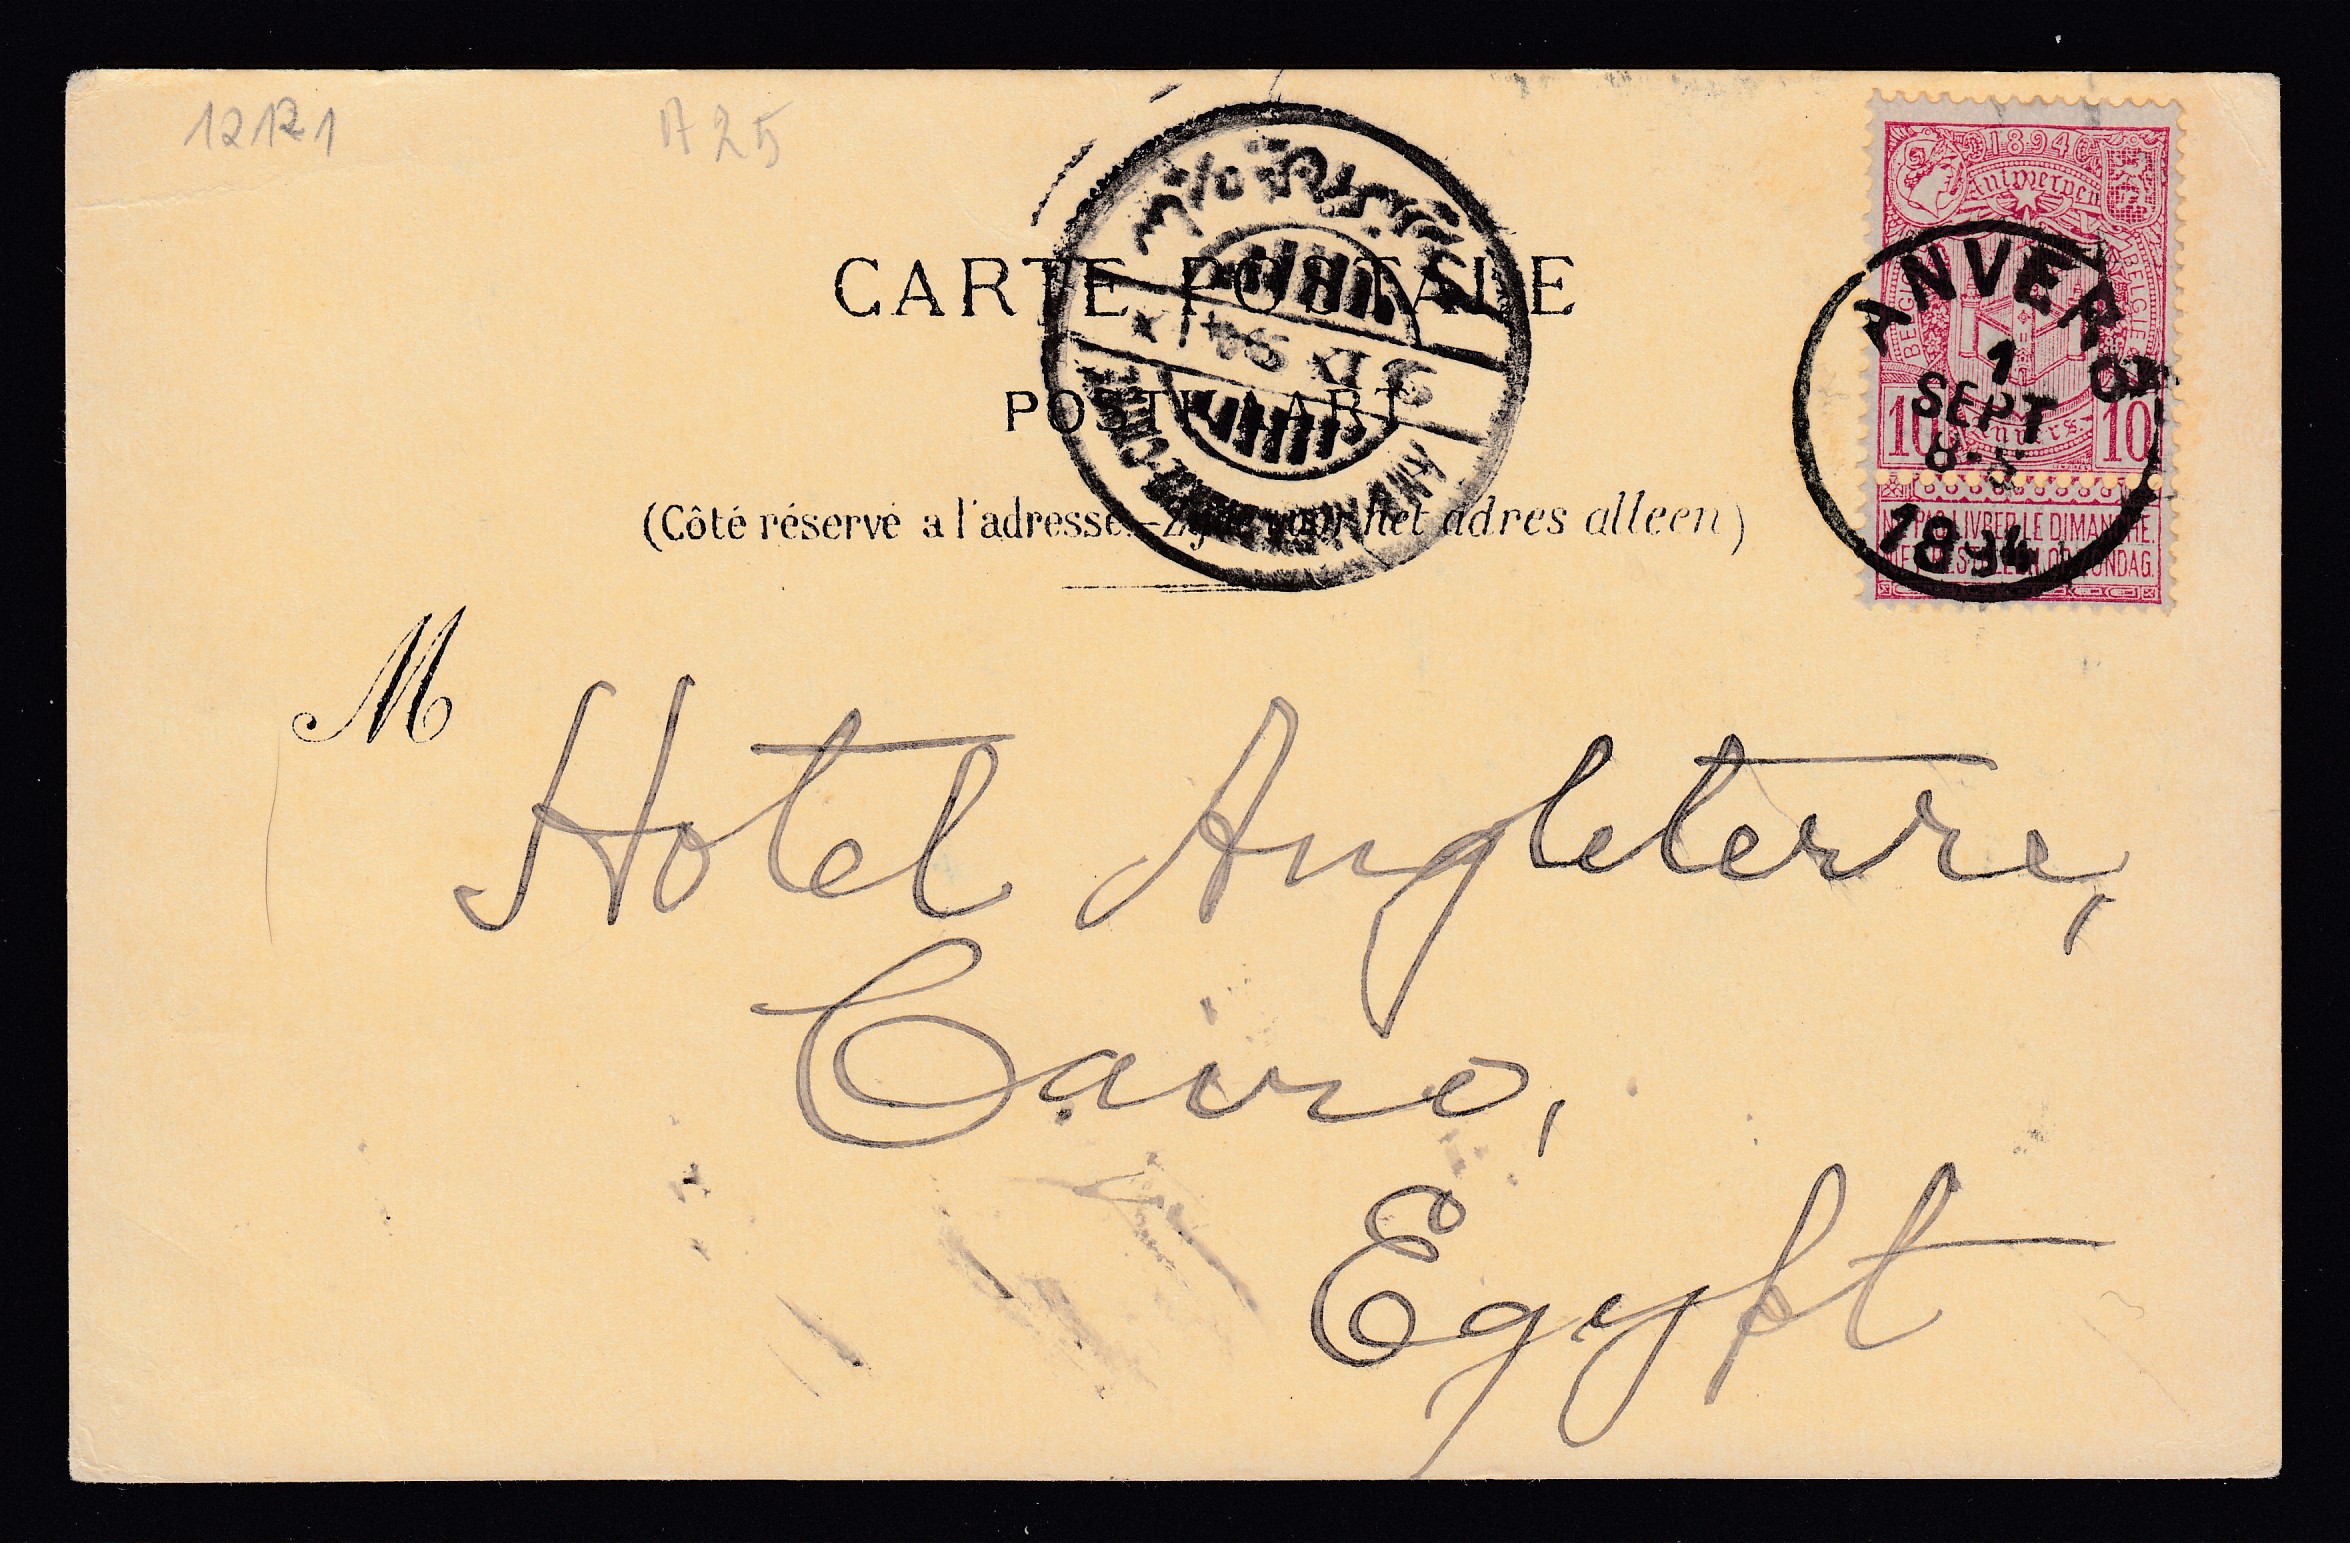 12121
A25
1894
Antwerpen
BELGIE
ANVERS
1
SEPT
8-S
1894
10 Anvers 10
NE PAS LIVRER LE DIMANCHE.
NIET BESTELLEN OP ZONDAG.
CARTE POSTALE
POSTKAART
(Côté réservé a l'adresse.-Zyde voor het adres alleen)
M
Hotel Angleterre,
Cairo,
Egypt